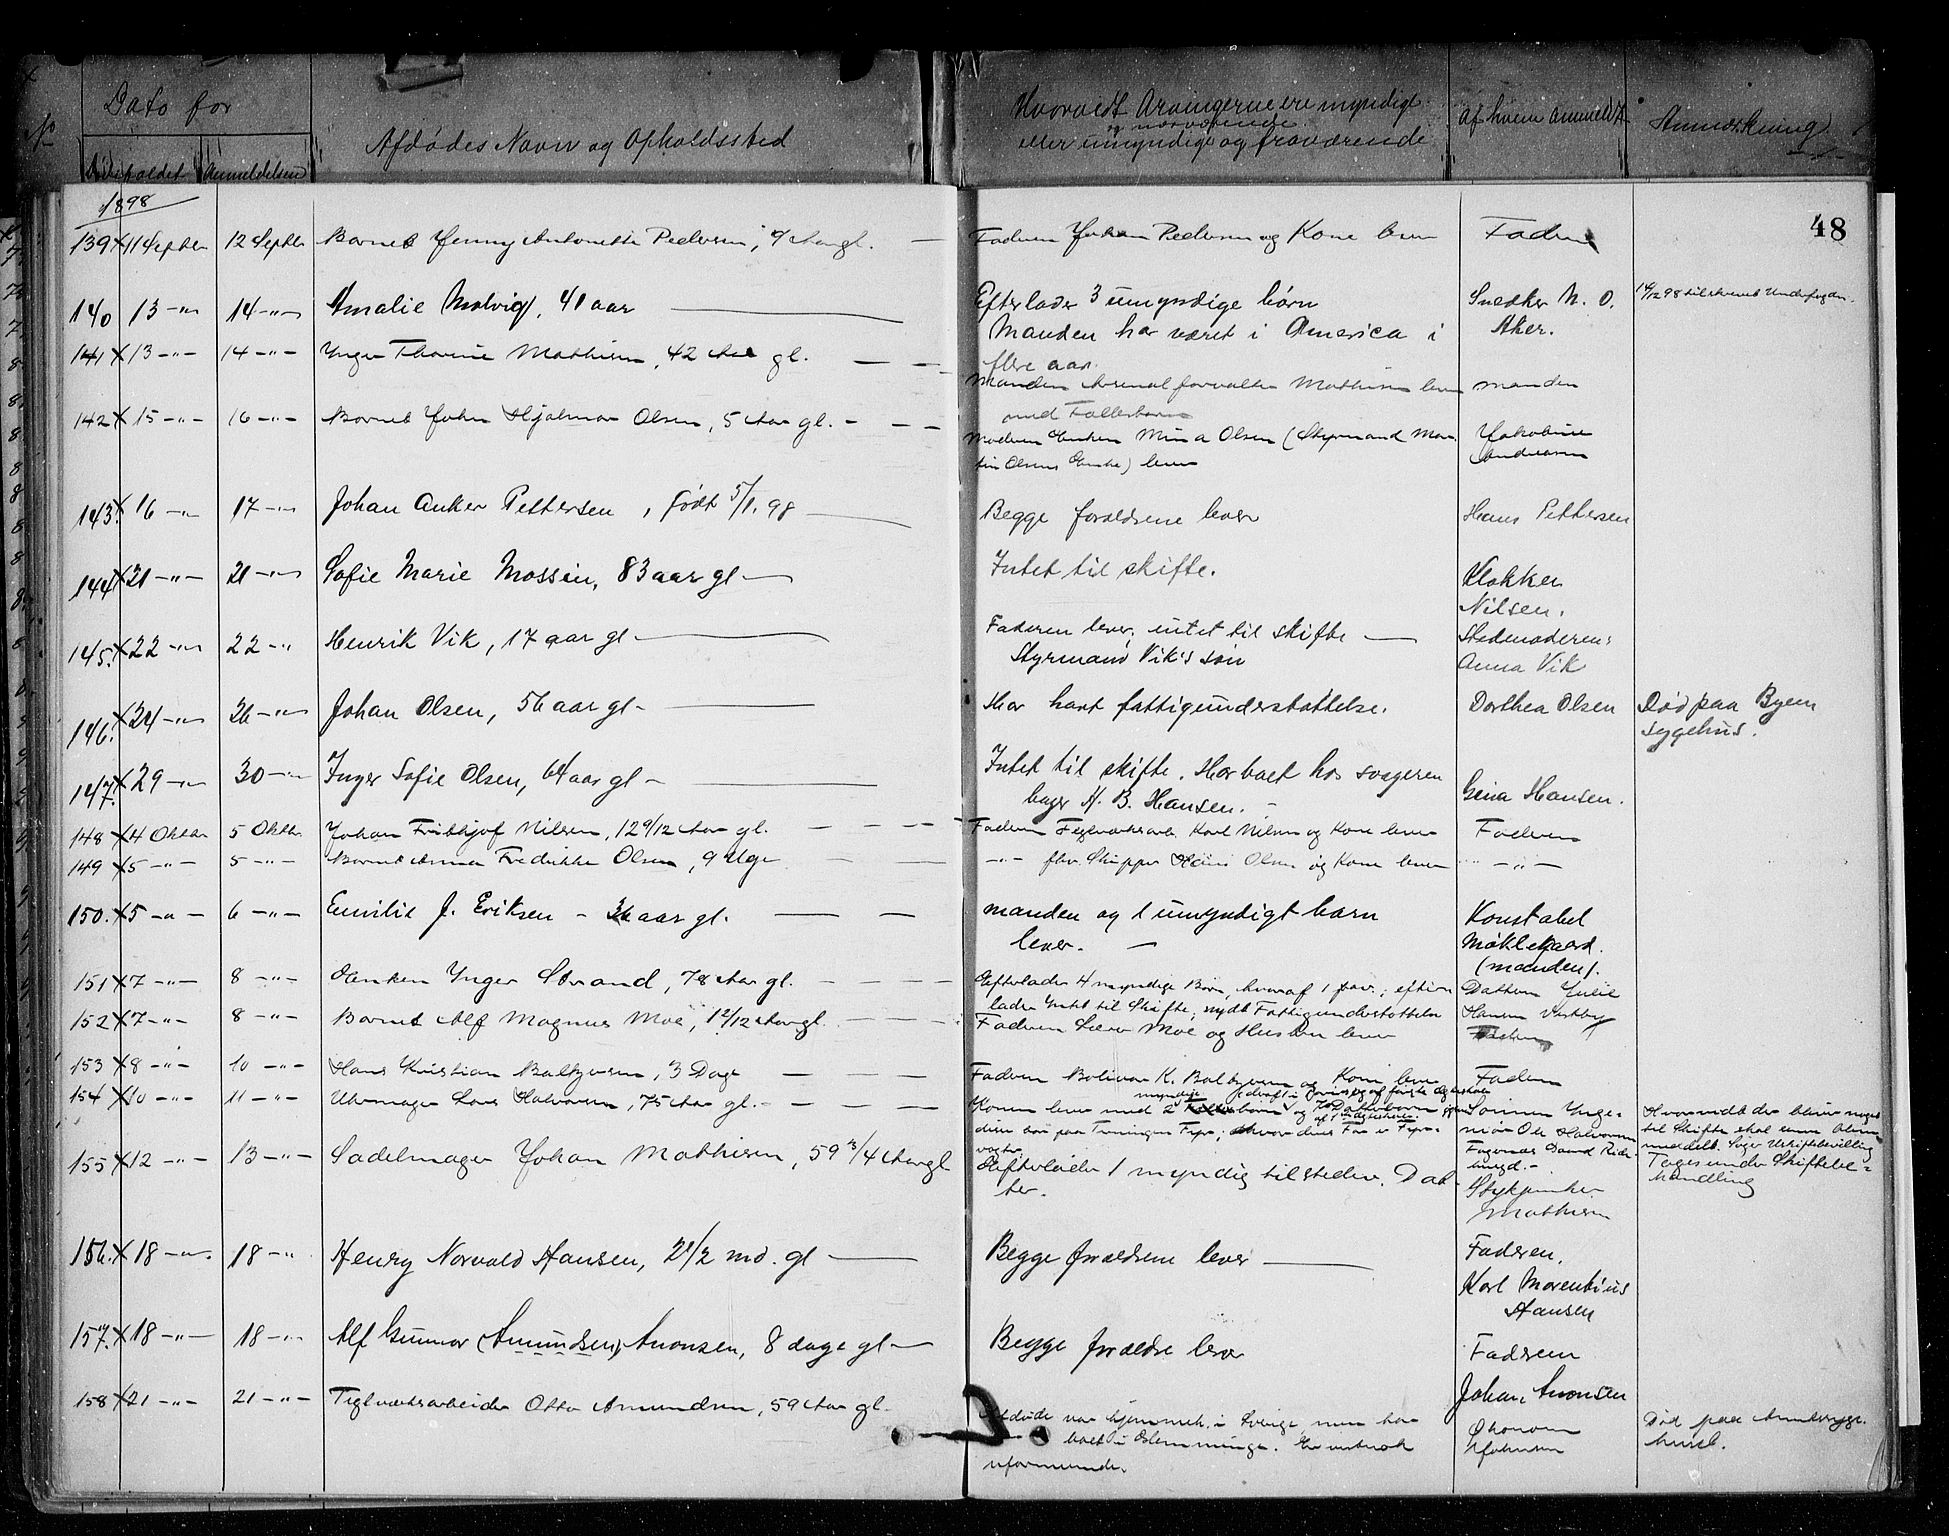 Dato for
No
Dødsfaldet Anmeldelsen
Afdødes Navn og Opholdssted
Hvorvidt Arvingerne ere myndige
og nærværende
eller umyndige og fraværende
af hvem anmeldt
Anmærkning
48
1898
139 X 11 Septbr 12 Septbr Barnet Jenny Antonette Pedersen, 9 Aar gl. — Faderen Johan Pedersen og Kone lever Faderen
140 13 -"- 14 -"- Amalie Malvig, 41 aar — Efterlader 3 umyndige børn Snedker N. O.
Manden har været i America i Aker.
flere aar.
141 X 13 -"- 14 -"- Inger Thorine Mathisen, 42 Aar gl. — Manden Arsenalforvalter Mathisen lever Manden
med Fællesbørn
142 X 15 -"- 16 -"- Barnet John Hjalmar Olsen, 5 Aar gl. - — Moderen Enken Mina Olsen (Styrmand Mar- Jakobine
tin Olsens Enke) lever Andersen
143. X 16 -"- 17 -"- Johan Anker Pettersen, født 5/1. 98 — Begge forældrene lever Hans Pettersen
144 X 21 -"- 21 -"- Sofie Marie Mossin, 83 aar gl — Intet til skifte. Klokker
Nilsen.
145. X 22 -"- 22 -"- Henrik Vik, 17 aar gl — Faderen lever, intet til skifte — Stedmoderen:
Styrmand Vik's søn Anna Vik
146. X 24 -"- 26 -"- Johan Olsen, 56 aar gl - — Har havt fattigunderstøttelse. Dorthea Olsen Død paa Byens
sygehus.
147. X 29 -"- 30 -"- Inger Sofie Olsen, 64 aar gl - — Intet til skifte. Har boet hos svogeren
bager H. B. Hansen. - Gina Hansen.
148 X 4 Oktbr 5 Oktbr. Johan Fridtjof Nilsen, 12 9/12 Aar gl. — Faderen Teglværksarb. Karl Nilsen og Kone lever Faderen
149 X 5 -"- 5 -"- Barnet Anna Fredrikke Olsen, 9 Uger — -"- fhv. Skipper Hans Olsen og Kone lever -"-
150. X 5 -"- 6 -"- Emilie J. Eriksen - 36 aar gl. — manden og 1 umyndigt barn Konstabel
lever. — Møklegaard.
(manden).
151 X 7 -"- 8 -"- Enken Inger Strand, 78 Aar gl. — Efterlader 4 myndige Børn, hvoraf 1 frav.; efter- Datteren Julie
lader Intet til Skifte; nydt Fattigunderstøttelse Hansen Vestby
152 X 7 -"- 8 -"- Barnet Alf Magnus Moe, 1 2/12 Aar gl. — Faderen Lærer Moe og Hustru lever Faderen
153 X 8 -"- 10 -"- Hans Kristian Baltzersen, 3 Dage — Faderen Bolivar K. Baltzersen og Kone lever Faderen
154 X 10 -"- 11 -"- Uhrmager Lars Halvorsen, 75 Aar gl. - — Konen lever med 2 myndige børn og Sønnen Inge-
niør Ole Halvorsen
Hvorvidt der bliver noget
til Skifte skal senere blive
meddelt. Søger Uskiftebevilling
155 X 12 -"- 13 -"- Sadelmager Johan Mathisen, 59 3/4 Aar gl Efterlader 1 myndig tilstede. Dat-
ter. Styksjunker
Mathisen
Tages under Skiftebe-
handling
156. X 18 -"- 18 -"- Henry Norvald Hansen, 2 1/2 md. gl — Begge forældrene lever — Faderen,
Karl Marentius
Hansen
157. X 18 -"- 18 -"- Alf Gunnar (Amundsen) Aronsen, 8 dage gl — Begge forældre lever Faderen
Johan Aronsen
158 X 21 -"- 21 -"- Teglværksarbeider Otto Amundsen, 59 Aar gl. Afdøde var hjemmeh. i Sverige, men har Økonom Død paa Amtssyge-
boet i Slemminge. Johnsen huset.
uformuende.